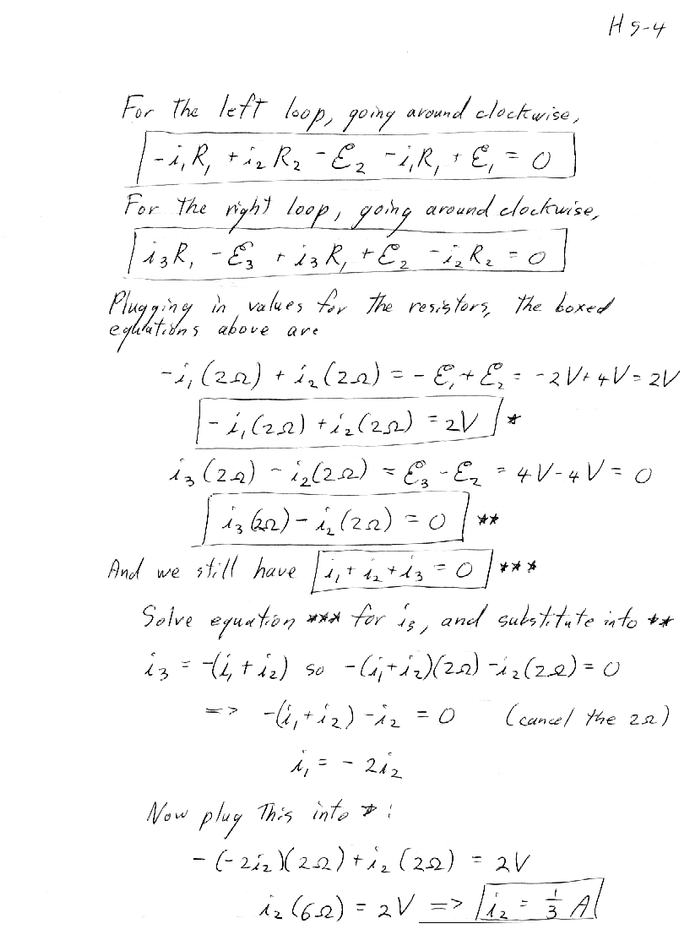 H9-4
For the left loop, going around clockwise,
-i₁R₁ + i₂R₂ - ℰ₂ - i₁R₁ + ℰ₁ = 0
For the right loop, going around clockwise,
i₃R₁ - ℰ₃ + i₃R₁ + ℰ₂ - i₂R₂ = 0
Plugging in values for the resistors, the boxed
equations above are
-i₁(2Ω) + i₂(2Ω) = -ℰ₁ + ℰ₂ = -2V + 4V = 2V
-i₁(2Ω) + i₂(2Ω) = 2V *
i₃(2Ω) - i₂(2Ω) = ℰ₃ - ℰ₂ = 4V - 4V = 0
i₃(2Ω) - i₂(2Ω) = 0 **
And we still have i₁ + i₂ + i₃ = 0 ***
Solve equation *** for i₃, and substitute into **
i₃ = -(i₁ + i₂) so -(i₁ + i₂)(2Ω) - i₂(2Ω) = 0
=> -(i₁ + i₂) - i₂ = 0 (cancel the 2Ω)
i₁ = -2i₂
Now plug this into *:
-(-2i₂)(2Ω) + i₂(2Ω) = 2V
i₂(6Ω) = 2V => i₂ = 1/3 A